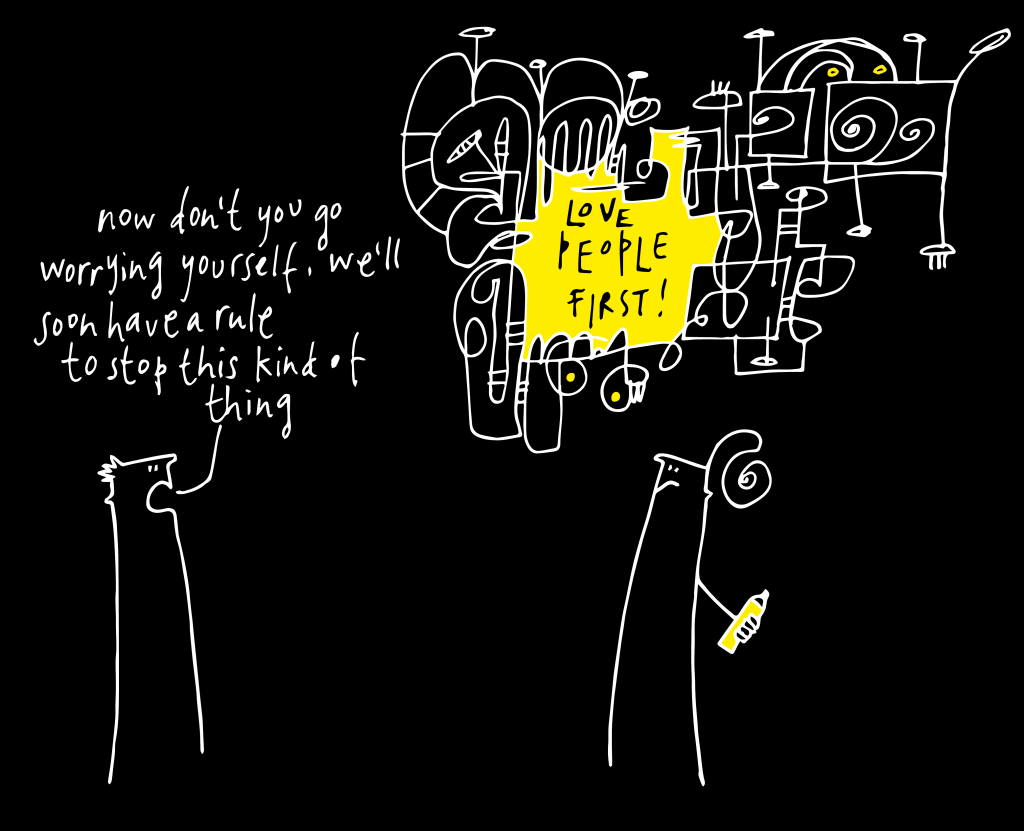 now don't you go
worrying yourself. we'll
soon have a rule
to stop this kind of
thing
LOVE
PEOPLE
FIRST!